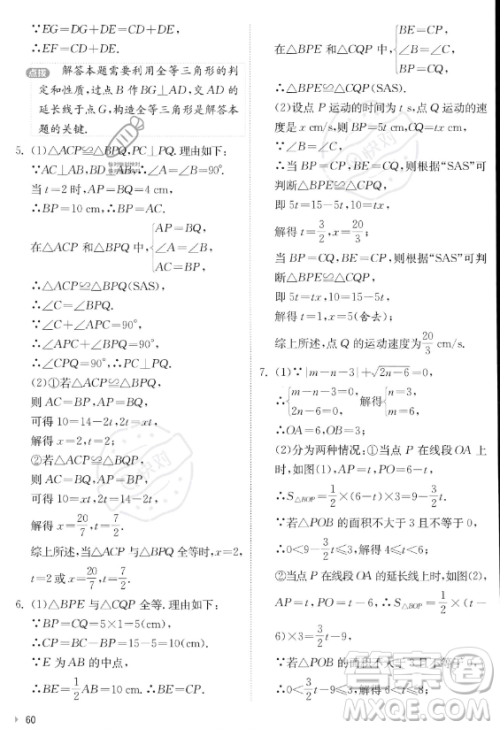 ∵EG=DG+DE=CD+DE,
∴EG=CD+DE.
点拨 解答本题需要利用全等三角形的判
定和性质,过点B作BG⊥AD,交AD的
延长线于点G,构造全等三角形是解答本
题的关键.
5. (1)△ACP≌△BPQ,PC⊥PQ.理由如下:
∵AC⊥AB,BD⊥AB,∴∠A=∠B=90°.
当t=2时,AP=BQ=4 cm,
∴BP=10 cm,∴BP=AC.
在△ACP和△BPQ中{AP=BQ,
∠A=∠B,
AC=BP,
∴△ACP≌△BPQ(SAS),
∴∠C=∠BPQ.
∵∠C+∠APC=90°,
∴∠APC+∠BPQ=90°,
∴∠CPQ=90°,∴PC⊥PQ.
(2)①若△ACP≌△BPQ,
则AC=BP,AP=BQ,
可得10=14-2t,2t=xt,
解得t=2,x=2.
②若△ACP≌△BQP,
则AC=BQ,AP=BP,
可得10=xt,2t=14-2t,
解得x=20/7,t=7/2.
综上所述,当△ACP与△BPQ全等时,x=2,
t=2或x=20/7,t=7/2.
6. (1)△BPE与△CQP全等.理由如下:
∵BP=CQ=5×1=5(cm),
∴CP=BC-BP=15-5=10(cm).
∵E为AB的中点,
∴BE=1/2AB=10 cm,∴BE=CP.
60
在△BPE和△CQP中{BP=CQ,
∠B=∠C,
BE=CP,
∴△BPE≌△CQP(SAS).
(2)设点P运动的时间为t s,点Q运动的速
度是x cm/s.
∵∠B=∠C,
∴当BP=CP,BE=CQ,则根据“SAS”可
判断△BPE≌△CPQ,
即5t=15-5t,10=xt,
解得t=3/2,x=20/3;
当BP=CQ,BE=CP,则根据“SAS”可判
断△BPE≌△CQP,
即5t=xt,10=15-5t,
解得t=1,x=5(舍去);
综上所述,点Q的运动速度为20/3 cm/s.
7. (1)∵|m-n-3|+√2n-6=0,
∴{m-n-3=0,
2n-6=0,解得{m=6,
n=3,
∴OA=6,OB=3;
(2)分为两种情况:①当点P在线段OA上
时,如图(1),AP=t,PO=6-t,
∴S△BOP=1/2×(6-t)×3=9-3/2t.
∵若△POB的面积不大于3且不等于0,
∴0<9-3/2t≤3,解得4≤t<6;
②当点P在线段OA的延长线上时,如图(2),
AP=t,PO=t-6,
∴S△BOP=1/2×(t-6)×3=3/2t-9.
∵若△POB的面积不大于3且不等于0,
∴0<3/2t-9≤3,解得6<t≤8;
作业帮
MXQE.COM